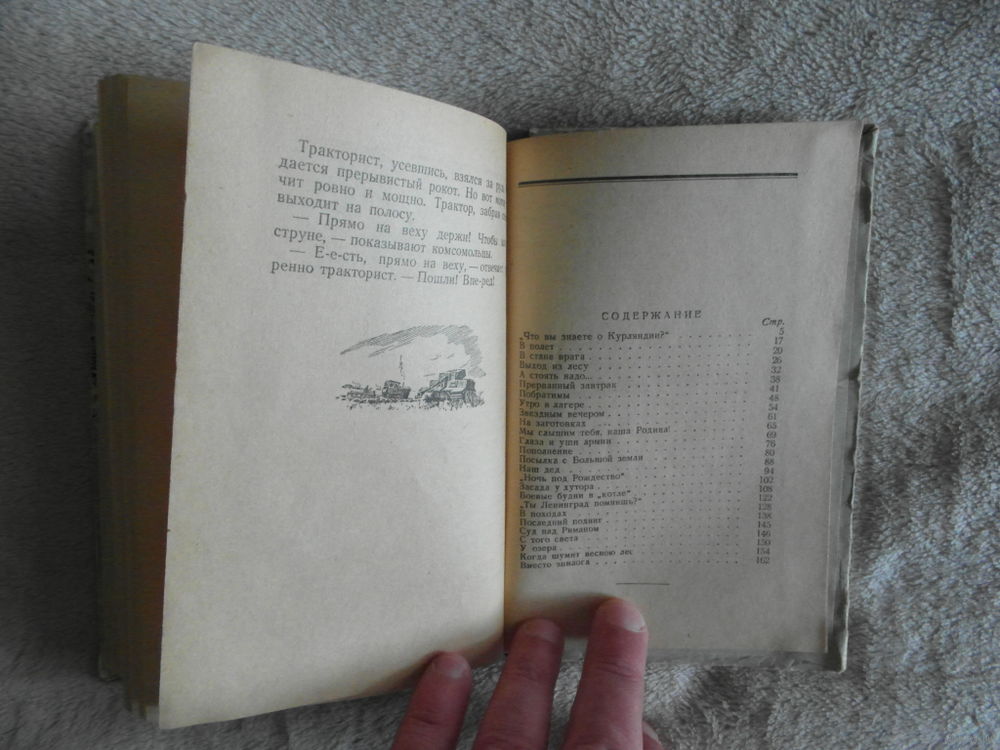 Тракторист, усевшись, взялся за
дается прерывистый рокот. Но вот
чит ровно и мощно. Трактор, забрав
выходит на полосу.
— Прямо на веху держи! Чтобы
струне, — показывают комсомольцы.
— Е-е-сть, прямо на веху, —
ренно тракторист. — Пошли! Впе-ред!
СОДЕРЖАНИЕ
Стр.
„Что вы знаете о Курляндии?“ 5
В полет 17
В стане врага 20
Выход из лесу 26
А стоять надо... 32
Прерванный завтрак 38
Побратимы 41
Утро в лагере 48
Звездным вечером 54
На заготовках 61
Мы слышим тебя, наша Родина! 65
Глаза и уши армии 69
Пополнение 76
Посылка с Большой земли 80
Наш дед 88
„Ночь под Рождество“ 94
Засада у хутора 102
Боевые будни в „котле“ 108
„Ты Ленинград помнишь?“ 122
В походах 128
Последний подвиг 138
Суд над Риманом 145
С того света 146
У озера 150
Когда шумит весною лес 154
Вместо эпилога 162